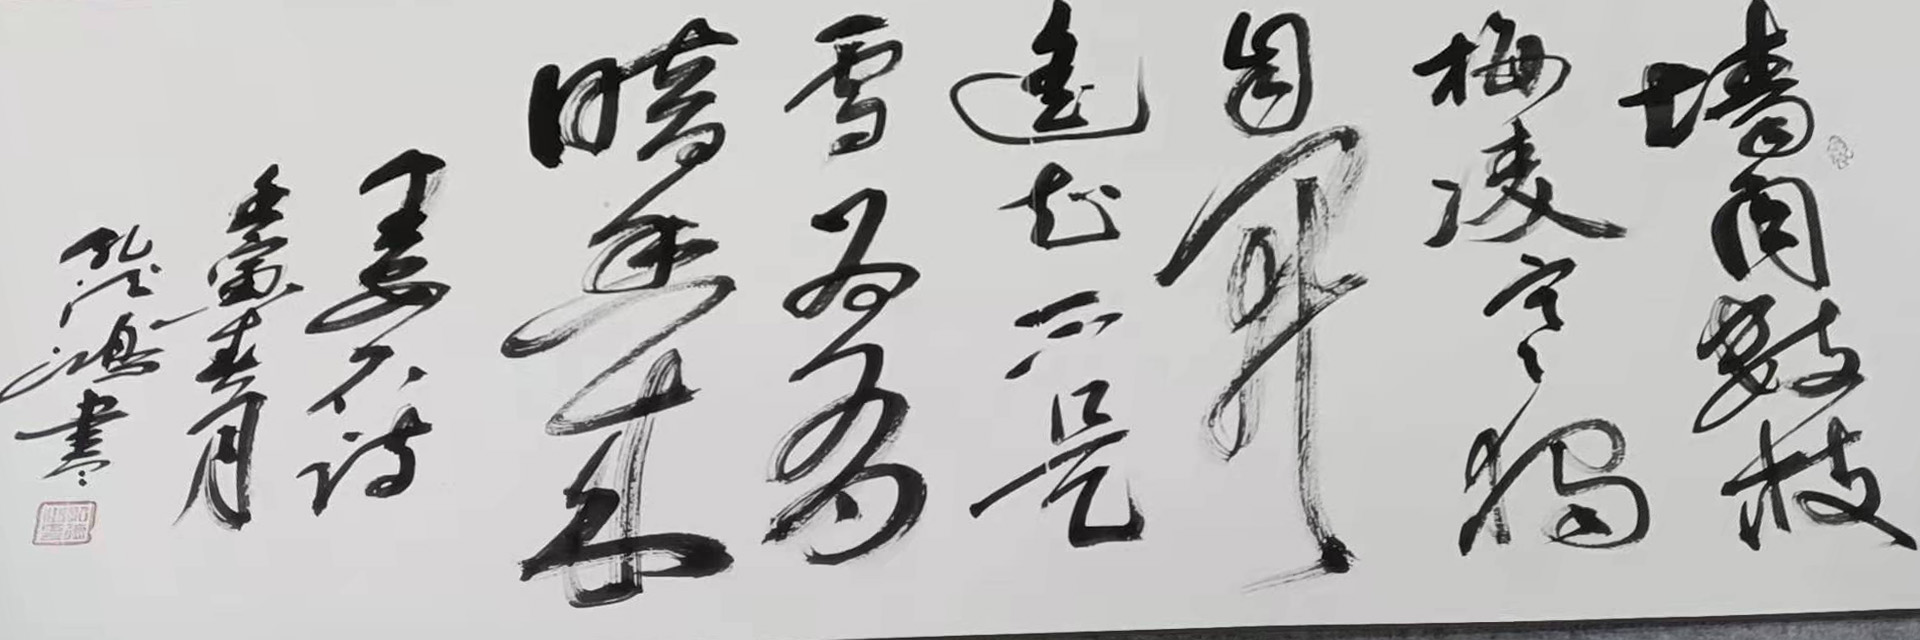 墙角数枝
梅凌寒独
自开
遥知不是
雪为有
暗香来
王安石诗
壬寅春月
鸿书